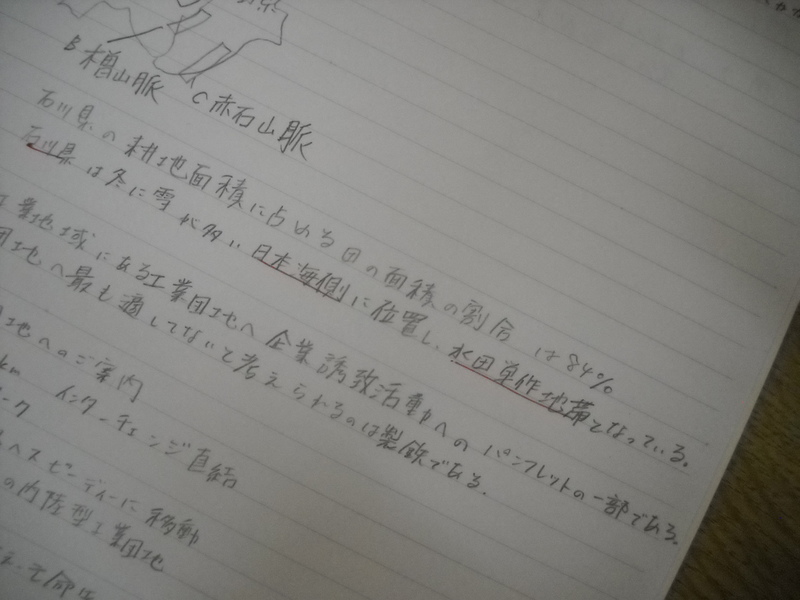 B 楢山脈 C 赤石山脈
石川県の耕地面積に占める田の面積の割合は84%
石川県は冬に雪が多い日本海側に位置し、水田単作地帯となっている。
工業地域にある工業団地へ企業誘致活動へのパンフレットの一部である。
団地へ最も適してないと考えられるのは製鉄である。
地へのご案内
km インターチェンジ直結
ーク
へスピーディーに移動
の内陸型工業団地